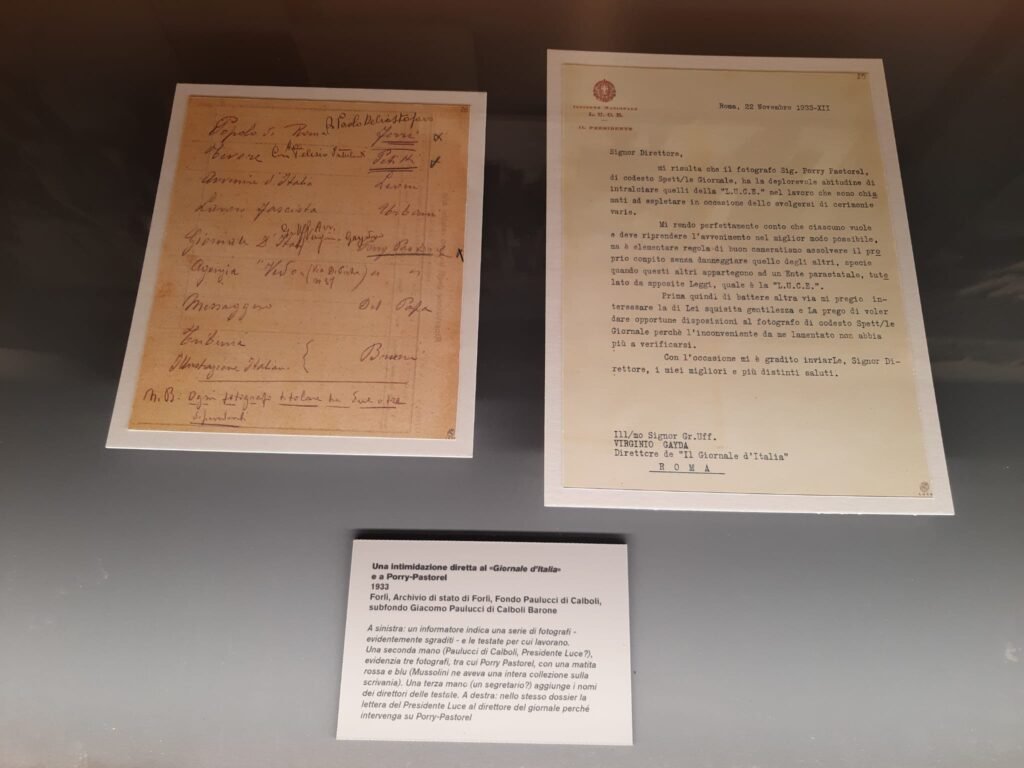 Popolo di Roma
Tevere
Avvenire d'Italia
Lavoro fascista
Giornale d'Italia Gayda Porry Pastorel
Agenzia "Vedo"
Messaggero Del Papa
Tribuna
Illustrazione Italiana
N.B: Ogni fotografo titolare ha due o tre
dipendenti
ISTITUTO NAZIONALE
L. U. C. E.
IL PRESIDENTE
Roma, 22 Novembre 1933-XII
Signor Direttore,
mi risulta che il fotografo Sig. Porry Pastorel,
di codesto Spett/le Giornale, ha la deplorevole abitudine di
intralciare quelli della "L.U.C.E." nel lavoro che sono chia
mati ad espletare in occasione dello svolgersi di cerimonie
varie.
Mi rendo perfettamente conto che ciascuno vuole
e deve riprendere l'avvenimento nel miglior modo possibile,
ma è elementare regola di buon cameratismo assolvere il pro
prio compito senza danneggiare quello degli altri, specie
quando questi altri appartengono ad un Ente parastatale, tute
lato da apposite Leggi, quale è la "L.U.C.E.".
Prima quindi di battere altra via mi pregio in-
teressare la di Lei squisita gentilezza e La prego di voler
dare opportune disposizioni al fotografo di codesto Spett/le
Giornale perchè l'inconveniente da me lamentato non abbia
più a verificarsi.
Con l'occasione mi è gradito inviarLe, Signor Di-
rettore, i miei migliori e più distinti saluti.
Ill/mo Signor Gr.Uff.
VIRGINIO GAYDA
Direttore de "Il Giornale d'Italia"
R O M A
Una intimidazione diretta al «Giornale d'Italia»
e a Porry-Pastorel
1933
Forlì, Archivio di stato di Forlì, Fondo Paulucci di Calboli,
subfondo Giacomo Paulucci di Calboli Barone
A sinistra: un informatore indica una serie di fotografi -
evidentemente sgraditi - e le testate per cui lavorano.
Una seconda mano (Paulucci di Calboli, Presidente Luce?),
evidenzia tre fotografi, tra cui Porry Pastorel, con una matita
rossa e blu (Mussolini ne aveva una intera collezione sulla
scrivania). Una terza mano (un segretario?) aggiunge i nomi
dei direttori delle testate. A destra: nello stesso dossier la
lettera del Presidente Luce al direttore del giornale perché
intervenga su Porry-Pastorel